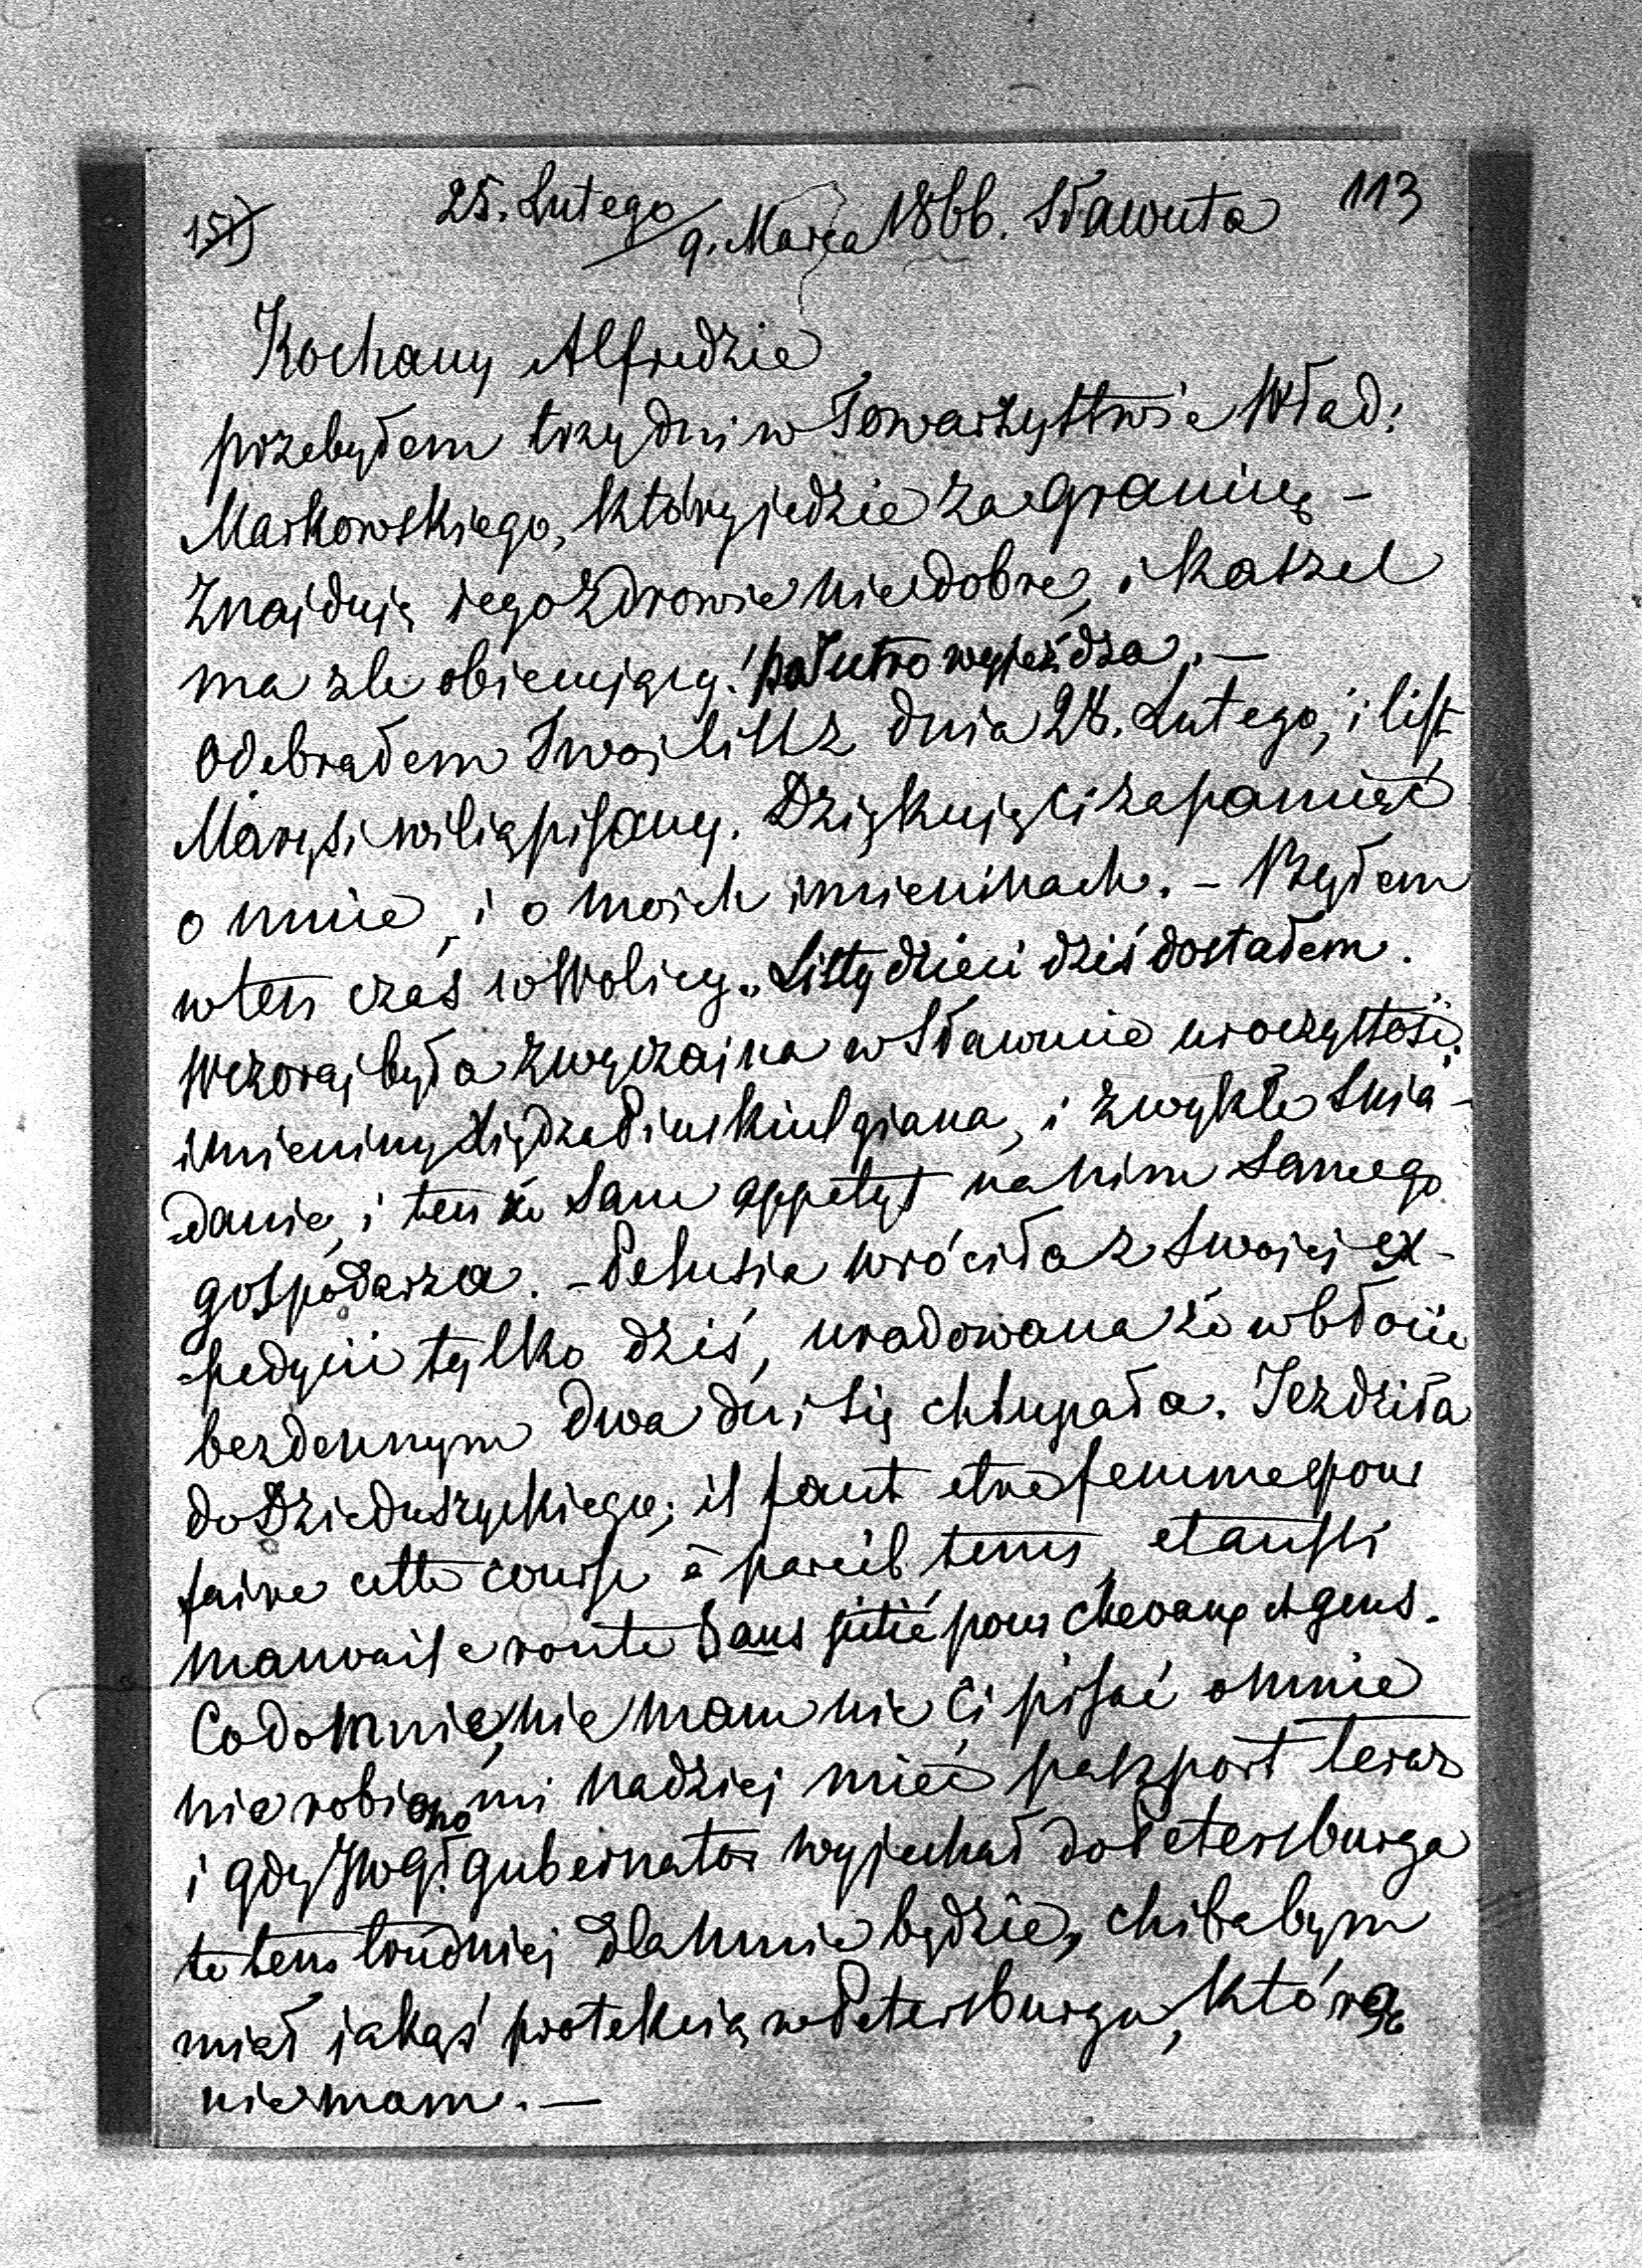 151) 25. Lutego/9. Marca 1866. Sławuta 113
Kochany Alfredzie
przebyłem trzy dni w Towarzystwie Wład:
Markowskiego, który jedzie za granicę –
Znajduję jego zdrowie niedobre, i kaszel
ma źle obiecujący! pojutro wyjeżdza. –
Odebrałem Twoj list z dnia 28. Lutego, i list
Marysi wilią pisany. Dziękuję Ci za pamięć
o mnie, i o moich imieninach. – Byłem
w ten czas w Wolicy. Listy dzieci dziś dostałem.
Wczoraj była zwyczajna w Sławucie uroczystość
imieniny Xiędza , i zwykłe snia-
danie, i ten że sam appetyt na nim samego
gospodarza. – Pelusia wróciła z swojej ex-
-pedycii tylko dziś, uradowana że w błocie
bezdennym dwa dni się chlupała. Jezdziła
do Dzieduszyckiego; il faut etre femme pour
faire cette course à pareil tems et aussi
mauvaise route sans pitié pour chevaux et gens.
Co do mnie, nie mam nic Ci pisać o mnie
nie robiono mi nadziej mieć paszport teraz
i gdy gubernator wyjechał do Petersburga
to tem trudniej dla mnie będzie, chiba bym
miał jakąś protekcią w Petersburgu, którą
nie mam. –